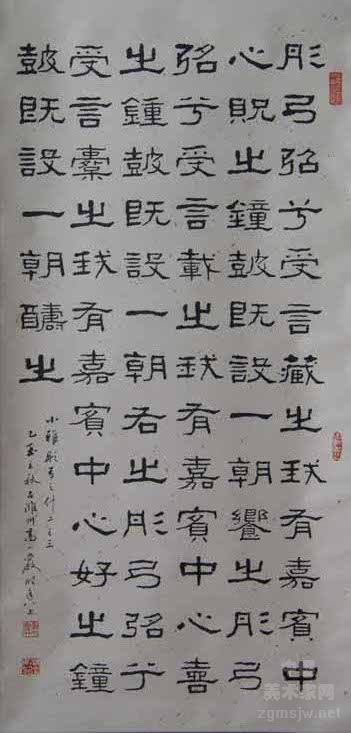 彤弓弨兮受言藏之我有嘉賓中
心貺之鐘鼓既設一朝饗之彤弓
弨兮受言載之我有嘉賓中心喜
之鍾鼓既設一朝右之彤弓弨兮
受言櫜之我有嘉賓中心好之鐘
鼓既設一朝醻之
小雅彤弓之什二之三
美术家网
zgmsjw.net